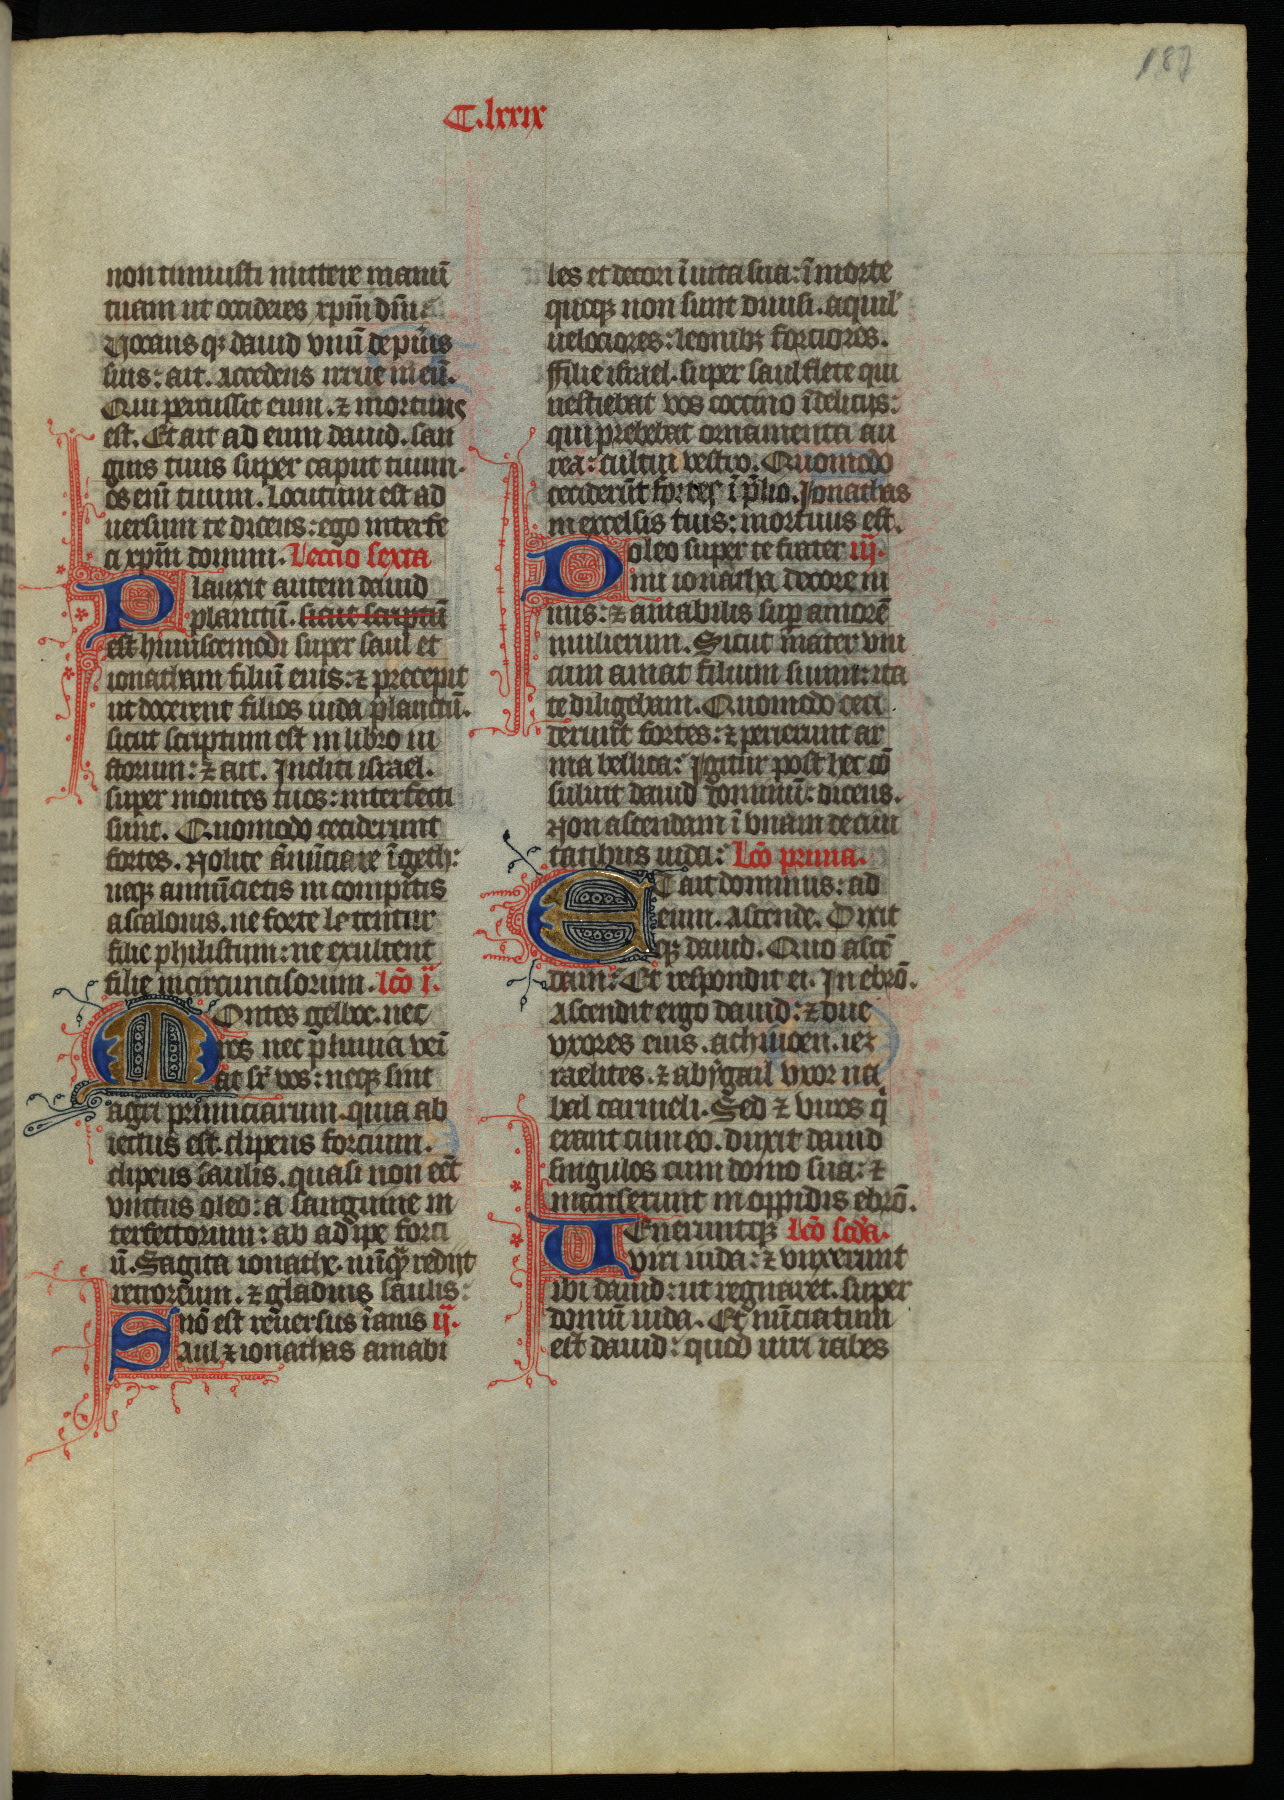 187
C.lxxix
non timuisti mittere manū
tuam ut occideres xpm̄ dn̄i.
Vocans qȝ dauid vnū de pūis
suis: ait. Accedens irrue in eū.
Qui percussit eum. ⁊ mortuus
est. Et ait ad eum dauid. san
guis tuus super caput tuum.
os enī tuum. Locutum est ad
uersum te dicens: ego interfe
ci xpm̄ domini. Leccio sexta
Planxit autem dauid
planctū. sicut scriptū
est huiuscemodi super saul et
ionatham filiū eius: ⁊ precepit
ut docerent filios iuda planctū.
sicut scriptum est in libro iu
storum: ⁊ ait. Incliti israel.
super montes tuos: interfecti
sunt. Quomodo ceciderunt
fortes. Nolite ānūciare ī geth:
neqȝ annūcietis in compitis
ascalonis. ne forte letentur
filie philistiim: ne exultent
filie incircuncisorum. lc̄o i.
Montes gelboe. nec
ros nec pluuia vēi
at sr̄ vos: neqȝ sint
agri primiciarum. quia ab
iectus est clipeus forcium.
clipeus saulis. quasi non eēt
vnctus oleo: a sanguine in
terfectorum: ab adipe forti
ū. Sagita ionathe. nūqȝ redijt
retrorsum. ⁊ gladius saulis:
nō est reuersus īanis ij.
Saul ⁊ ionathas amabi
les et decori ī uita sua: ī morte
quoqȝ non sunt diuisi. aquil'
uelociores: leonibȝ forciores.
ffilie israel. super saul flete qui
uestiebat vos coccino ī delicijs:
qui prebebat ornamenta au
rea: cultui vestro. Quomodo
ceciderūt fortes ī p̄lio. Jonathas
in excelsis tuis: mortuus est.
Doleo super te frater iij.
mi ionatha decore ni
mis: ⁊ amabilis sup amorē
mulierum. Sicut mater vni
cum amat filium suum: ita
te diligebam. Quomodo ceci
derunt fortes: ⁊ perierunt ar
ma bellica: Igitur post hec cō
suluit dauid dominū: dicens.
Non ascendam ī vnam de ciui
tatibus iuda: Lc̄o prima.
Et ait dominus: ad
eum. Ascende. Dixit
qȝ dauid. Quo ascē
dam: Et respondit ei. In ebrō.
Ascendit ergo dauid: ⁊ due
vxores eius. achinoen. iez
raelites. ⁊ abygail vxor na
bal carmeli. Sed ⁊ viros q̄
erant cum eo. duxit dauid
singulos cum domo sua: ⁊
manserunt in oppidis ebrō.
Ueneruntqȝ Lc̄o scd̄a.
viri iuda: ⁊ vnxerunt
ibi dauid: ut regnaret. super
domū iuda. Et nūciatum
est dauid: quod uiri iabes